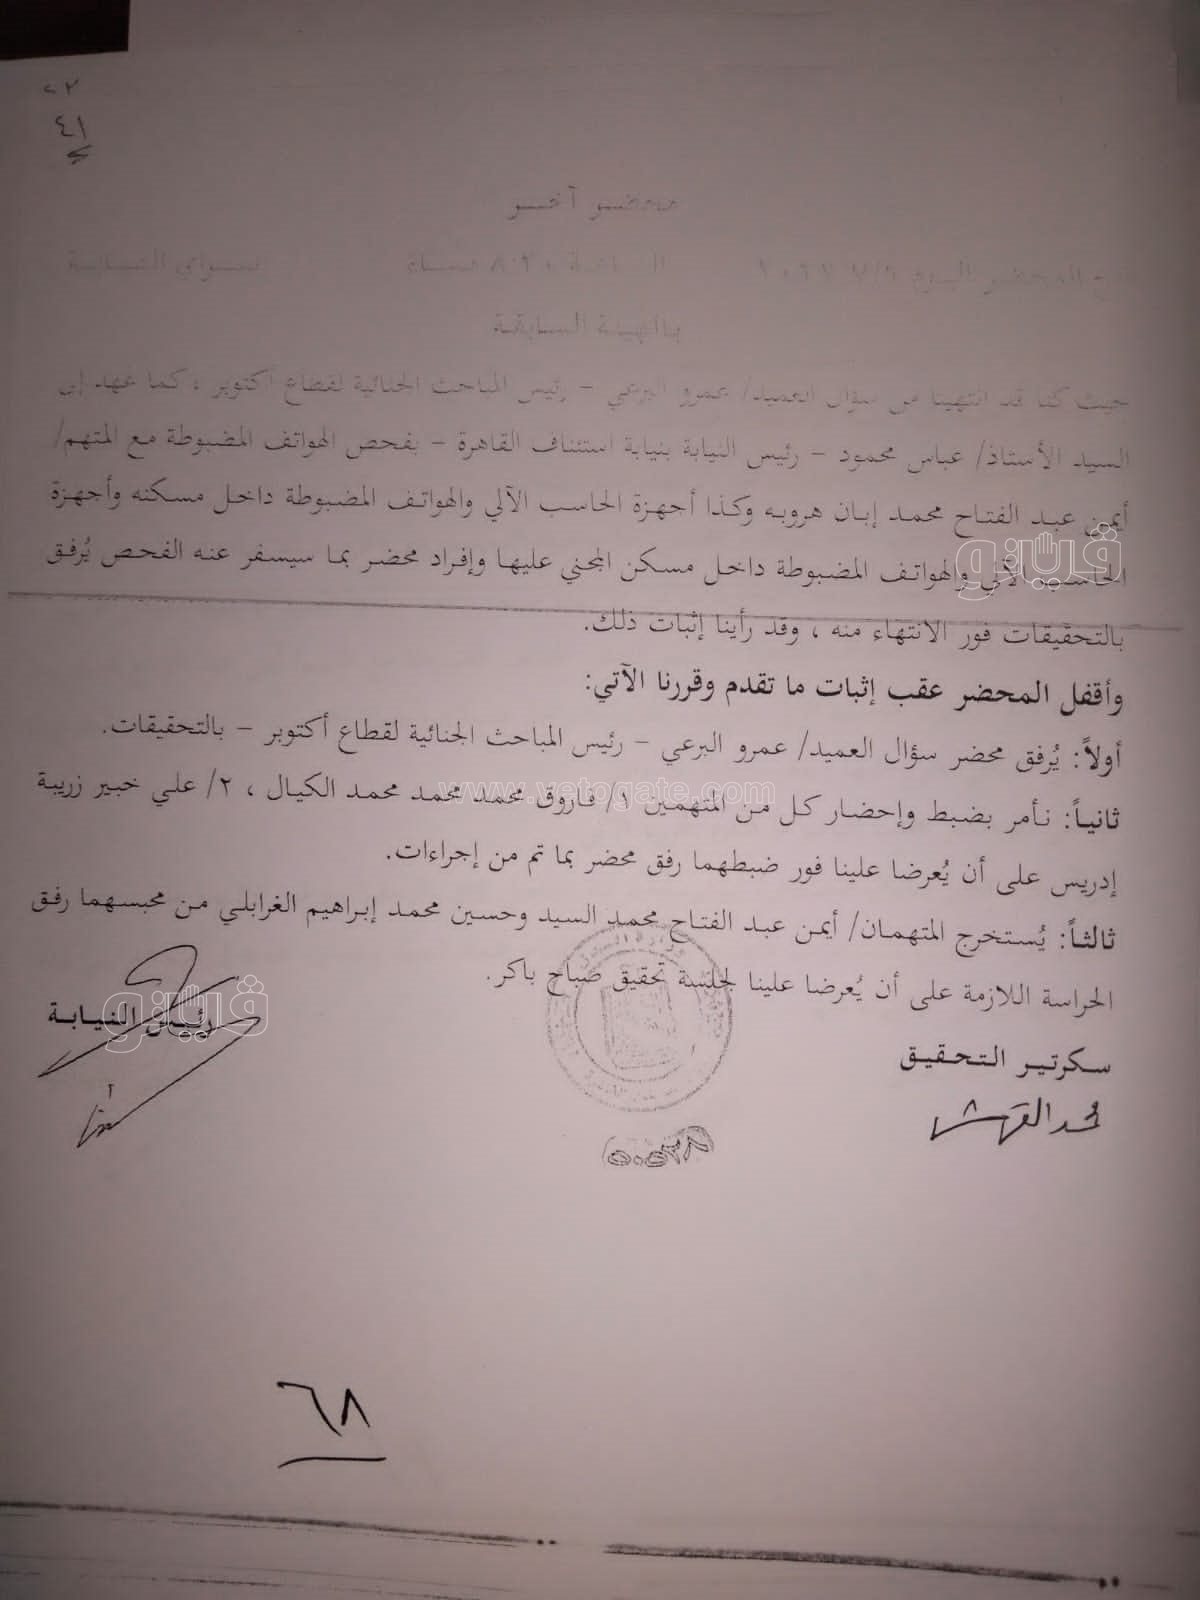 ٢٢
٤١
محضر آخر
فتح المحضر اليوم
الساعة ٨,٣٠ مساء
بسراي النيابة
بالهيئة السابقة
حيث كنا قد انتهينا من سؤال العميد/ عمرو البرعي – رئيس المباحث الجنائية لقطاع أكتوبر ، كما عهد إلى
السيد الأستاذ/ عباس محمود – رئيس النيابة بنيابة استئناف القاهرة – بفحص الهواتف المضبوطة مع المتهم/
أيمن عبد الفتاح محمد إبان هروبه وكذا أجهزة الحاسب الآلي والهواتف المضبوطة داخل مسكنه وأجهزة
الحاسب الآلي والهواتف المضبوطة داخل مسكن المجني عليها وإفراد محضر بما سيسفر عنه الفحص يُرفق
بالتحقيقات فور الانتهاء منه ، وقد رأينا إثبات ذلك.
وأقفل المحضر عقب إثبات ما تقدم وقررنا الآتي:
أولاً: يُرفق محضر سؤال العميد/ عمرو البرعي – رئيس المباحث الجنائية لقطاع أكتوبر – بالتحقيقات.
ثانياً: نأمر بضبط وإحضار كل من المتهمين ١/ فاروق محمد محمد محمد الكيال ، ٢/ علي خبير زريبة
إدريس على أن يُعرضا علينا فور ضبطهما رفق محضر بما تم من إجراءات.
ثالثاً: يُستخرج المتهمان/ أيمن عبد الفتاح محمد السيد وحسين محمد إبراهيم الغرابلي من محبسهما رفق
الحراسة اللازمة على أن يُعرضا علينا لجلسة تحقيق صباح باكر.
سكرتير التحقيق
رئيس النيابة
٦٨
فيتو
www.vetogate.com
فيتو